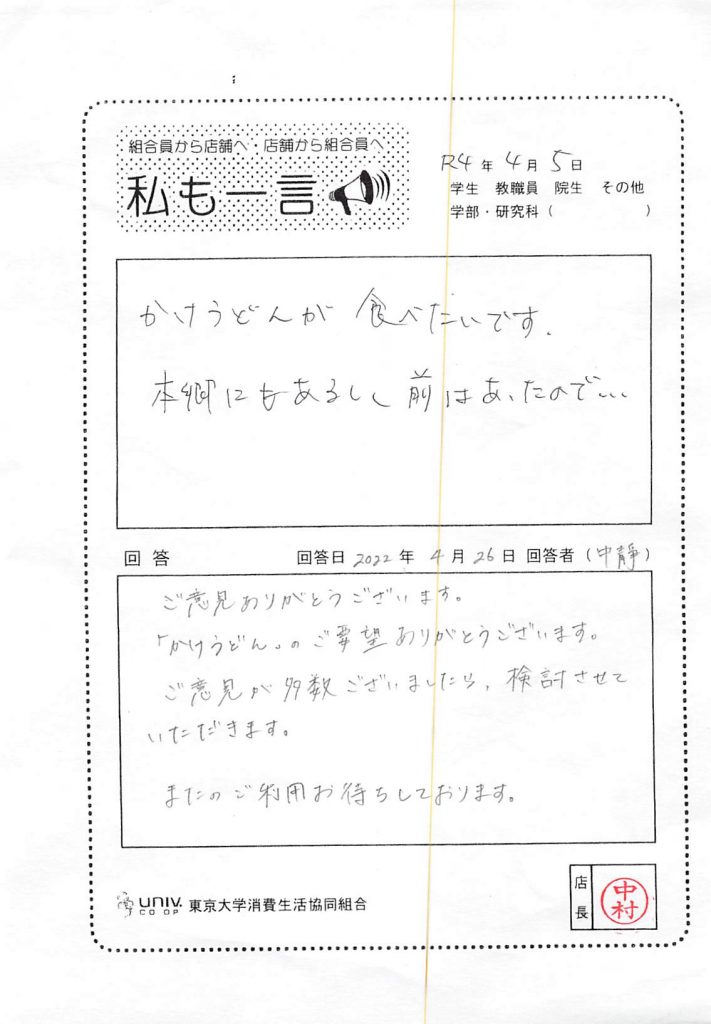 組合員から店舗へ・店舗から組合員へ
私も一言
R4 年 4 月 5 日
学生 教職員 院生 その他
学部・研究科 ( )
かけうどんが 食べたいです.
本郷にもあるし、前はあったので...
回答 回答日 2022 年 4 月 26 日 回答者 (中静)
ご意見ありがとうございます。
「かけうどん」のご要望ありがとうございます。
ご意見が多数ございましたら、検討させて
いただきます。
またのご利用お待ちしております。
UNIV. CO-OP 東京大学消費生活協同組合
店長
中村